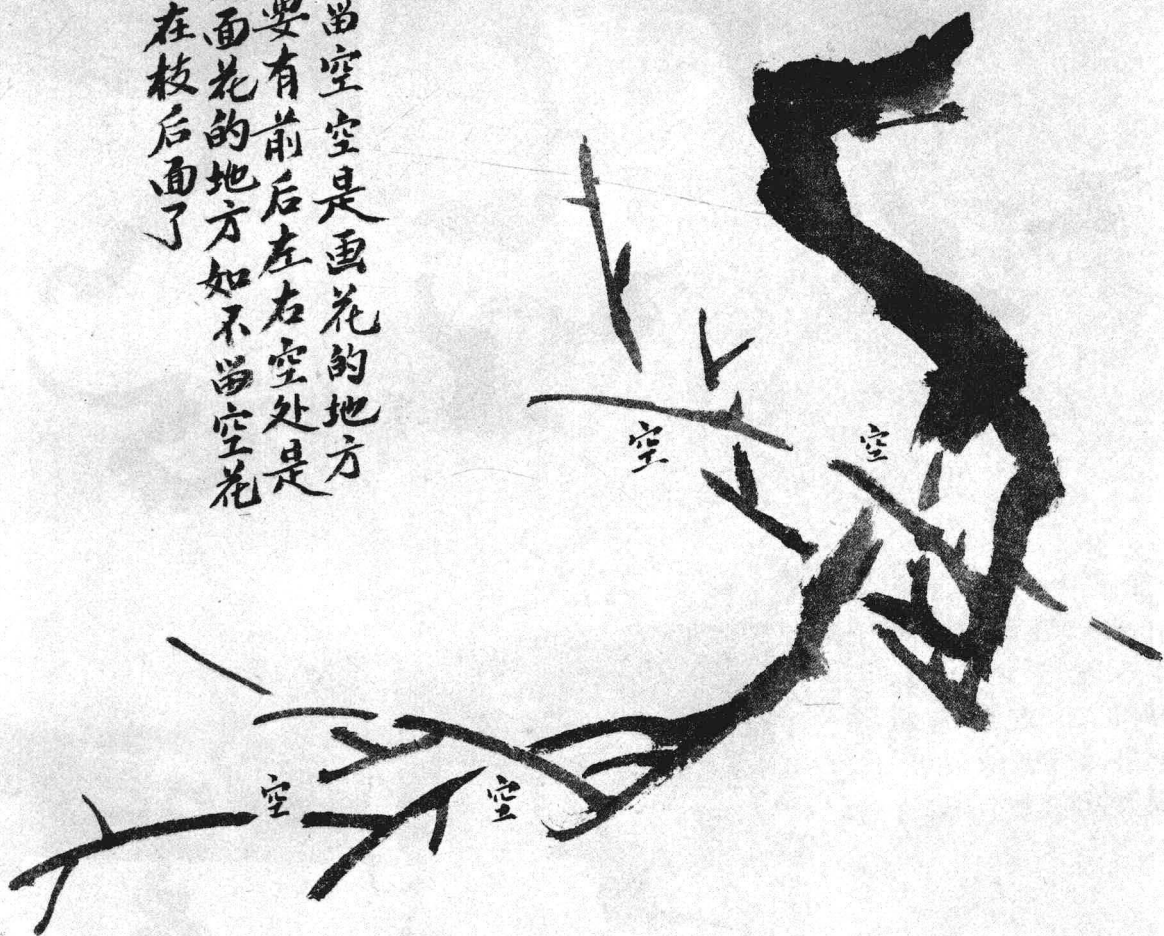 留空空是画花的地方
要有前后左右空处是
面花的地方如不留空花
在枝后面了
空
空
空
空